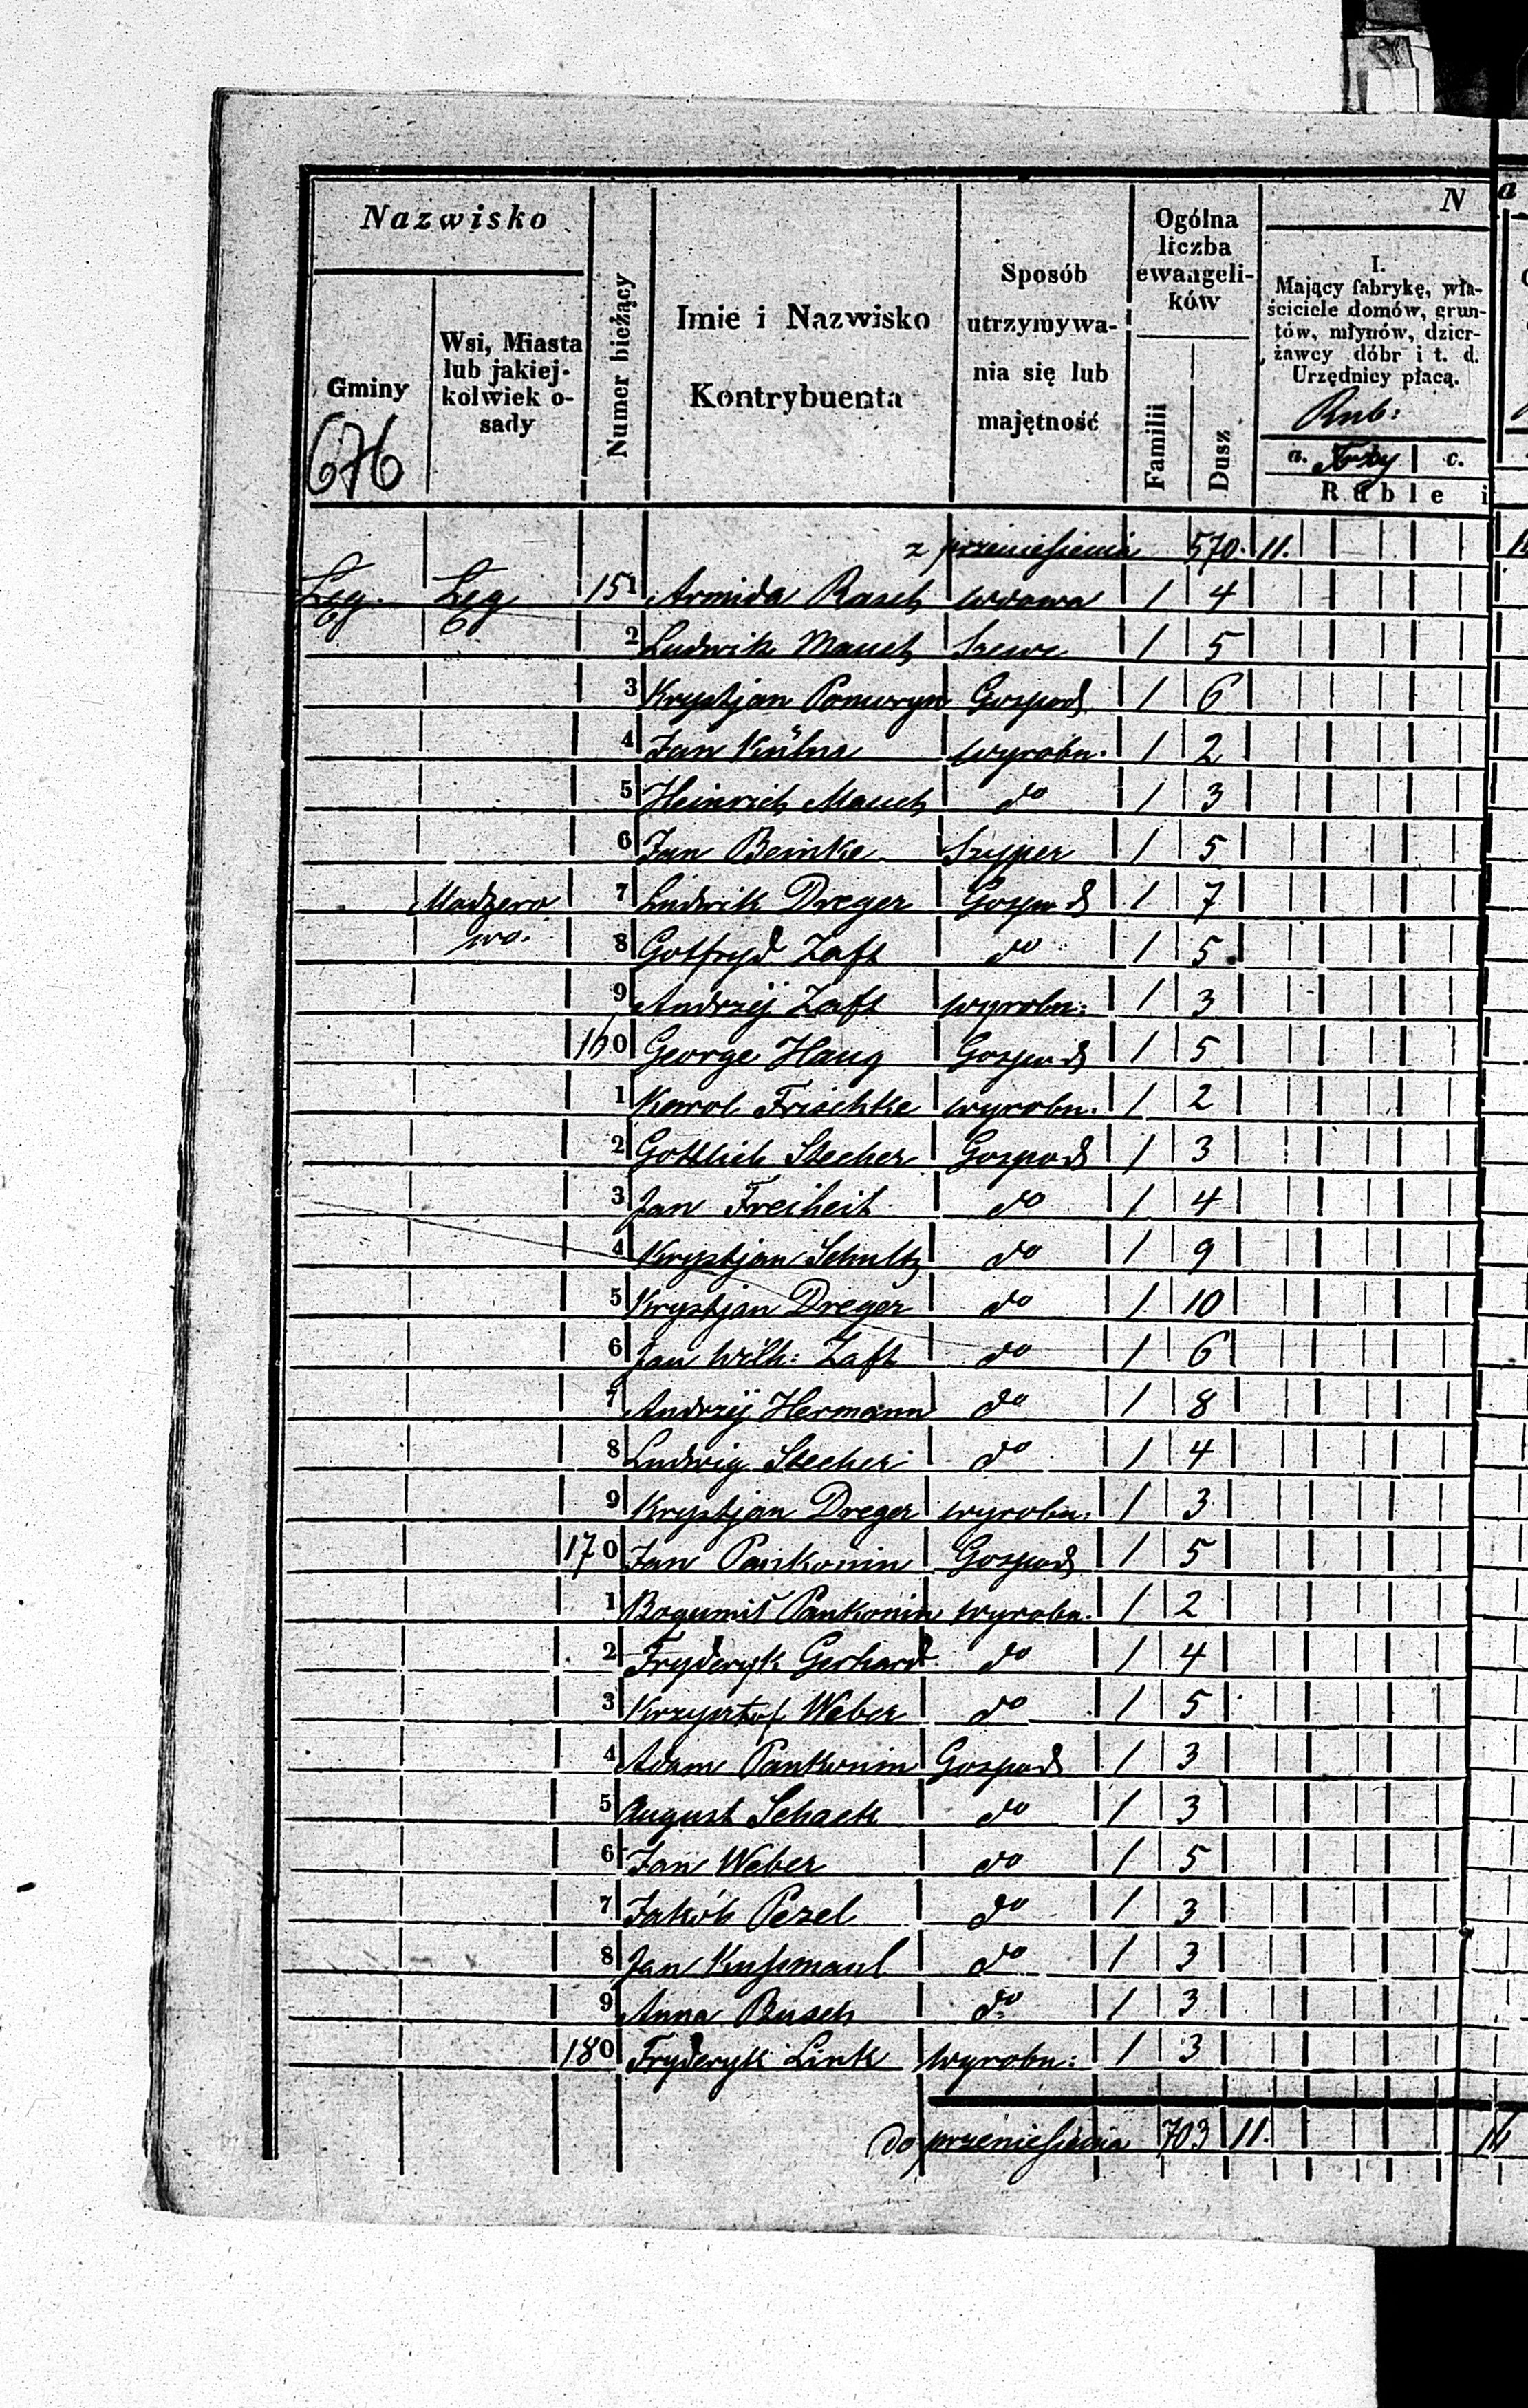 Nazwisko
Gminy
Wsi, Miasta
lub jakiej-
kolwiek o-
sady
Numer bieżący
Imie i Nazwisko
Kontrybuenta
Sposób
utrzymywa-
nia się lub
majętność
Ogólna
liczba
ewangeli-
ków
Familii
Dusz
N a
I.
Mający fabrykę, wła-
ściciele domów, grun-
tów, młynów, dzier-
żawcy dóbr i t. d.
Urzędnicy płacą.
Rub:
a. c.
Ruble i
676
z przeniesienia 570. 11.
Łęg Łęg 151 Armida Rasch wdowa 1 4
2 Ludwik Mauch Szewc 1 5
3 Krystjan Gospod 1 6
4 Jan wyrobn. 1 2
5 Heinrich Mauch do 1 3
6 Jan Beinke Szyper 1 5
Madzero
wo. 7 Ludwik Dreger Gospod 1 7
8 Gotfryd Zaft do 1 5
9 Andrzej Zaft wyrobn: 1 3
160 George Haug Gospod 1 5
1 Karol Frischke wyrobn. 1 2
2 Gottlieb Stecher Gospod 1 3
3 Jan Freiheit do 1 4
4 Krystjan Schultz do 1 9
5 Krystjan Dreger do 1 10
6 Jan Wilh: Zaft do 1 6
7 Andrzej Hermann do 1 8
8 Ludwig Stecher do 1 4
9 Krystjan Dreger wyrobn: 1 3
170 Jan Pankonin Gospod 1 5
1 Bogumił Pankonin wyrobn. 1 2
2 Fryderyk Gerhard do 1 4
3 Krzysztof Weber do 1 5
4 Adam Pankonin Gospod 1 3
5 August Schack do 1 3
6 Jan Weber do 1 5
7 Jakób Pezel do 1 3
8 Jan Kussmaul do 1 3
9 Anna Busch do 1 3
180 Fryderyk Link wyrobn: 1 3
do przeniesienia 703 11.